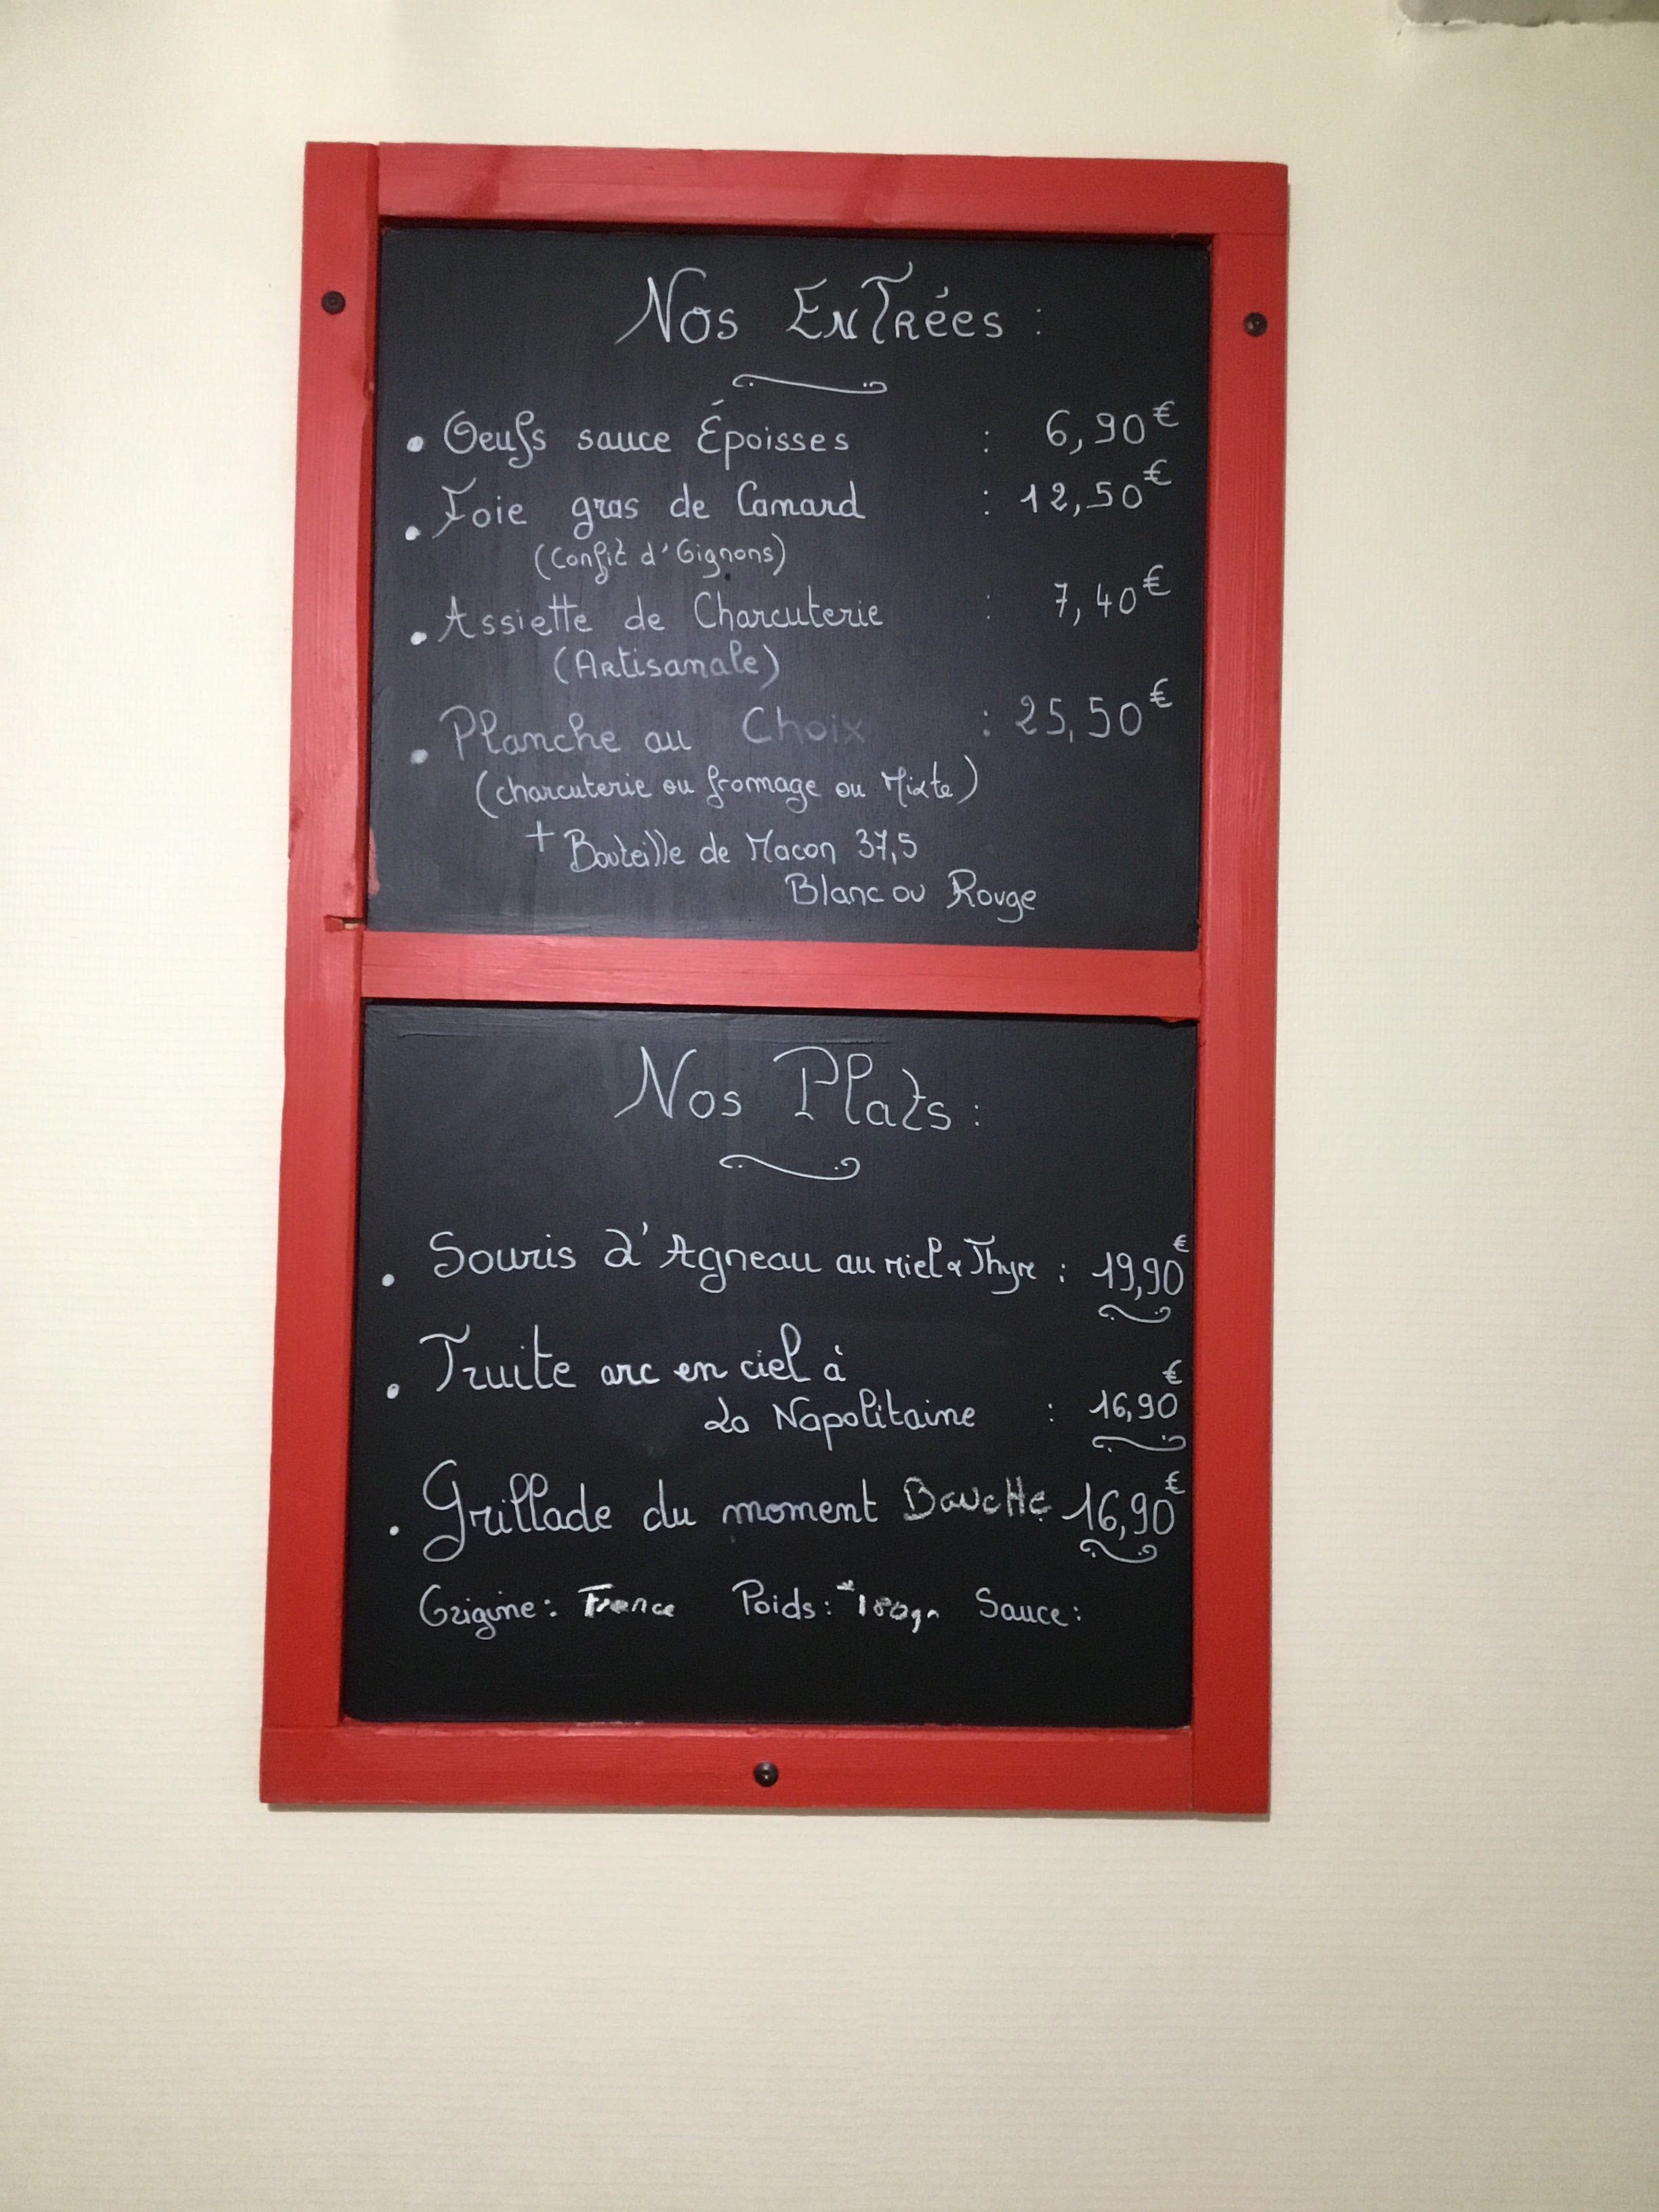 Nos Entrées :
• Oeufs sauce Époisses : 6,90€
• Foie gras de Canard : 12,50€
(Confit d'Oignons)
• Assiette de Charcuterie : 7,40€
(Artisanale)
• Planche au Choix : 25,50€
(charcuterie ou fromage ou Mixte)
+ Bouteille de Macon 37,5
Blanc ou Rouge
Nos Plats :
• Souris d'Agneau au miel & Thym : 19,90€
• Truite arc en ciel à
la Napolitaine : 16,90€
• Grillade du moment Bavette 16,90€
Origine : France Poids : 180gr Sauce :